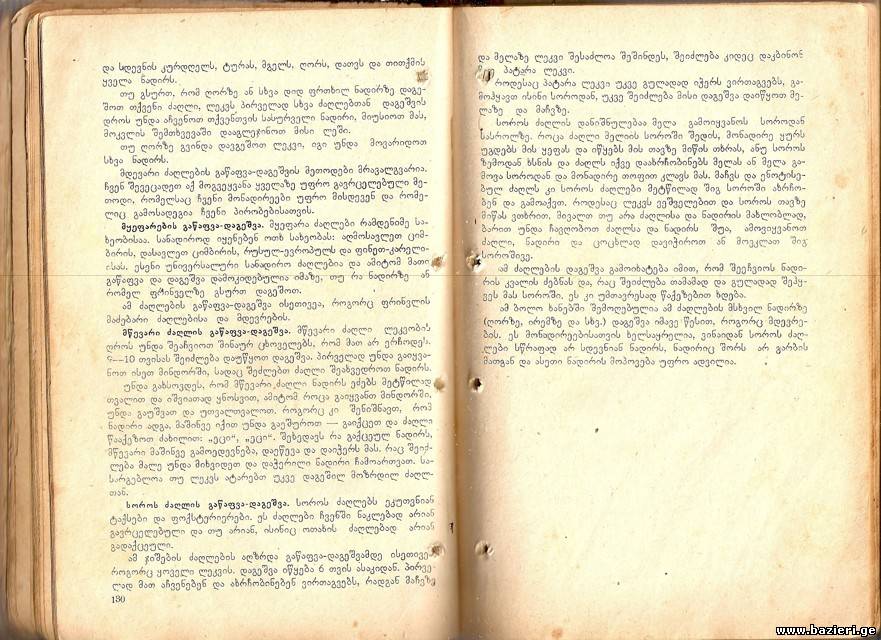 და სდევნის კურდღელს, ტურას, მგელს, ღორს, დათვს და თითქმის
ყველა ნადირს.
თუ გსურთ, რომ ღორზე ან სხვა დიდ ფრთხილ ნადირზე დაგე-
შოთ თქვენი ძაღლი, ლეკვს პირველად სხვა ძაღლებთან დაგეშვის
დროს უნდა აჩვენოთ თქვენთვის სასურველი ნადირი, მიუსიოთ მას,
მოკვლის შემთხვევაში დააგლეჯინოთ მისი ლეში.
თუ ღორზე გვინდა დავგეშოთ ლეკვი, იგი უნდა მოვარიდოთ
სხვა ნადირს.
მდევარი ძაღლების გაწაფვა-დაგეშვის მეთოდები მრავალგვარია.
ჩვენ შევეცადეთ აქ მოგვეყვანა ყველაზე უფრო გავრცელებული მე-
თოდი, რომელსაც ჩვენი მონადირეები უფრო მისდევენ და რომე-
ლიც გამოსადეგია ჩვენი პირობებისათვის.
მყეფარების გაწაფვა-დაგეშვა. მყეფარა ძაღლები რამდენიმე სა-
ხეობისაა. სანადიროდ იყენებენ ოთხ სახეობას: აღმოსავლეთ ციმ-
ბირის, დასავლეთ ციმბირის, რუსულ-ევროპულს და ფინეთ-კარელი-
ისას. ესენი უნივერსალური სანადირო ძაღლებია და ამიტომ მათი
გაწაფვა და დაგეშვა დამოკიდებულია იმაზე, თუ რა ნადირზე ან
რომელ ფრინველზე გსურთ დაგეშოთ.
ამ ძაღლების გაწაფვა-დაგეშვა ისეთივეა, როგორც ფრინვლის
მაძებარი ძაღლებისა და მდევრების.
მწევარი ძაღლის გაწაფვა-დაგეშვა. მწევარი ძაღლი ლეკვობის
დროს უნდა შეაჩვიოთ შინაურ ცხოველებს, რომ მათ არ ერჩოდეს.
9—10 თვისას შეიძლება დაუწყოთ დაგეშვა. პირველად უნდა გაიყვა-
ნოთ ისეთ მინდორში, სადაც შეძლებთ ძაღლი შეახვედროთ ნადირს.
უნდა გახსოვდეს, რომ მწევარი ძაღლი ნადირს ეძებს მეტწილად
თვალით და იშვიათად ყნოსვით, ამიტომ როცა გაიყვანთ მინდორში,
უნდა გაუშვათ და უთვალთვალოთ. როგორც კი შენიშნავთ, რომ
ნადირი ადგა, მაშინვე იქით უნდა გაეშუროთ — გაიქცეთ და ძაღლი
წააქეზოთ ძახილით: „ეცი“, „ეცი“. შეხედავს რა გაქცეულ ნადირს,
მწევარი მაშინვე გამოედევნება, დაეწევა და დაიჭერს მას. რაც შეიძ-
ლება მალე უნდა მიხვიდეთ და დაჭერილი ნადირი ჩამოართვათ. სა-
სარგებლოა თუ ლეკვს ატარებთ უკვე დაგეშილ მოზრდილ ძაღლ-
თან.
სოროს ძაღლის გაწაფვა-დაგეშვა. სოროს ძაღლებს ეკუთვნიან
ტაქსები და ფოქსტერიერები. ეს ძაღლები ჩვენში ნაკლებად არიან
გავრცელებული და თუ არიან, ისინიც ოთახის ძაღლებად არიან
გადაქცეული.
ამ ჯიშების ძაღლების აღზრდა გაწაფვა-დაგეშვამდე ისეთივეა
როგორც ყოველი ლეკვის. დაგეშვა იწყება 6 თვის ასაკიდან. პირვე-
ლად მათ აჩვენებენ და ახრჩობინებენ ვირთაგვებს, რადგან მაჩვზე
130
და მელაზე ლეკვი შესაძლოა შეშინდეს, შეიძლება კიდეც დაკბინონ
პატარა ლეკვი.
როდესაც პატარა ლეკვი უკვე გულადად იჭერს ვირთაგვებს, გა-
მოჰყავთ ისინი სოროდან, უკვე შეიძლება მისი დაგეშვა დაიწყოთ მე-
ლაზე და მაჩვზე.
სოროს ძაღლის დანიშნულებაა მელა გამოიყვანოს სოროდან
სასროლზე. როცა ძაღლი მელიის სოროში შედის, მონადირე ყურს
უგდებს მის ყეფას და იწყებს მის თავზე მიწის თხრას, ანუ სოროს
ზემოდან ხსნის და ძაღლს იქვე დაახრჩობინებს მელას ან მელა გა-
მოვა სოროდან და მონადირე თოფით კლავს მას. მაჩვს და ენოტისე-
ბულ ძაღლს კი სოროს ძაღლები მეტწილად შიგ სოროში ახრჩო-
ბენ და გამოაქვთ. როდესაც ლეკვს ვეშველებით და სოროს თავზე
მიწას ვთხრით. მივალთ თუ არა ძაღლისა და ნადირის მახლობლად,
ბარით უნდა ჩავღობოთ ძაღლსა და ნადირს შუა, ამოვიყვანოთ
ძაღლი, ნადირი და ცოცხლად დავიჭიროთ ან მოვკლათ შიგ
სოროშივე.
ამ ძაღლების დაგეშვა გამოიხატება იმით, რომ შეეჩვიოს ნადი-
რის კვალის ძებნას და, რაც შეიძლება თამამად და გულადად შეჰყ-
ვეს მას სოროში, ეს კი უმთავრესად წაქეზებით ხდება.
ამ ბოლო ხანებში შემოღებულია ამ ძაღლების მსხვილ ნადირზე
(ღორზე, ირემზე და სხვ.) დაგეშვა იმავე წესით, როგორც მდევრე-
ბის. ეს მონადირეებისათვის ხელსაყრელია, ვინაიდან სოროს ძაღ-
ლები სწრაფად არ სდევნიან ნადირს, ნადირიც შორს არ გარბის
მათგან და ასეთი ნადირის მოპოვება უფრო ადვილია.
www.bazieri.ge